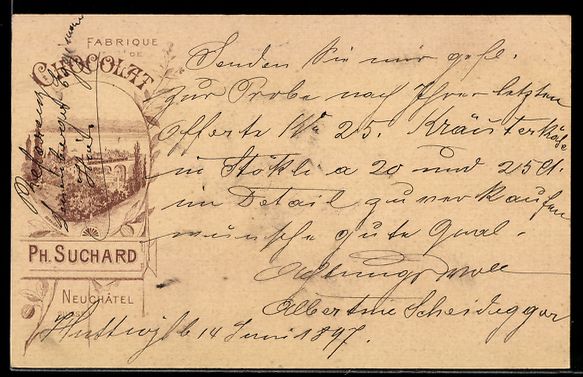 FABRIQUE
DE
CHOCOLAT
PH. SUCHARD
NEUCHÂTEL
Senden Sie mir gefl.
zur Probe nach Ihrer letzten
Offerte 25. Kräuterkäse
in Stökli a 20 und 25 Ct.
im Detail zu verkaufen
wünsche gute Qual.
Achtungsvoll
Albertine Scheidegger
Huttwyl b 14 Juni 1897.